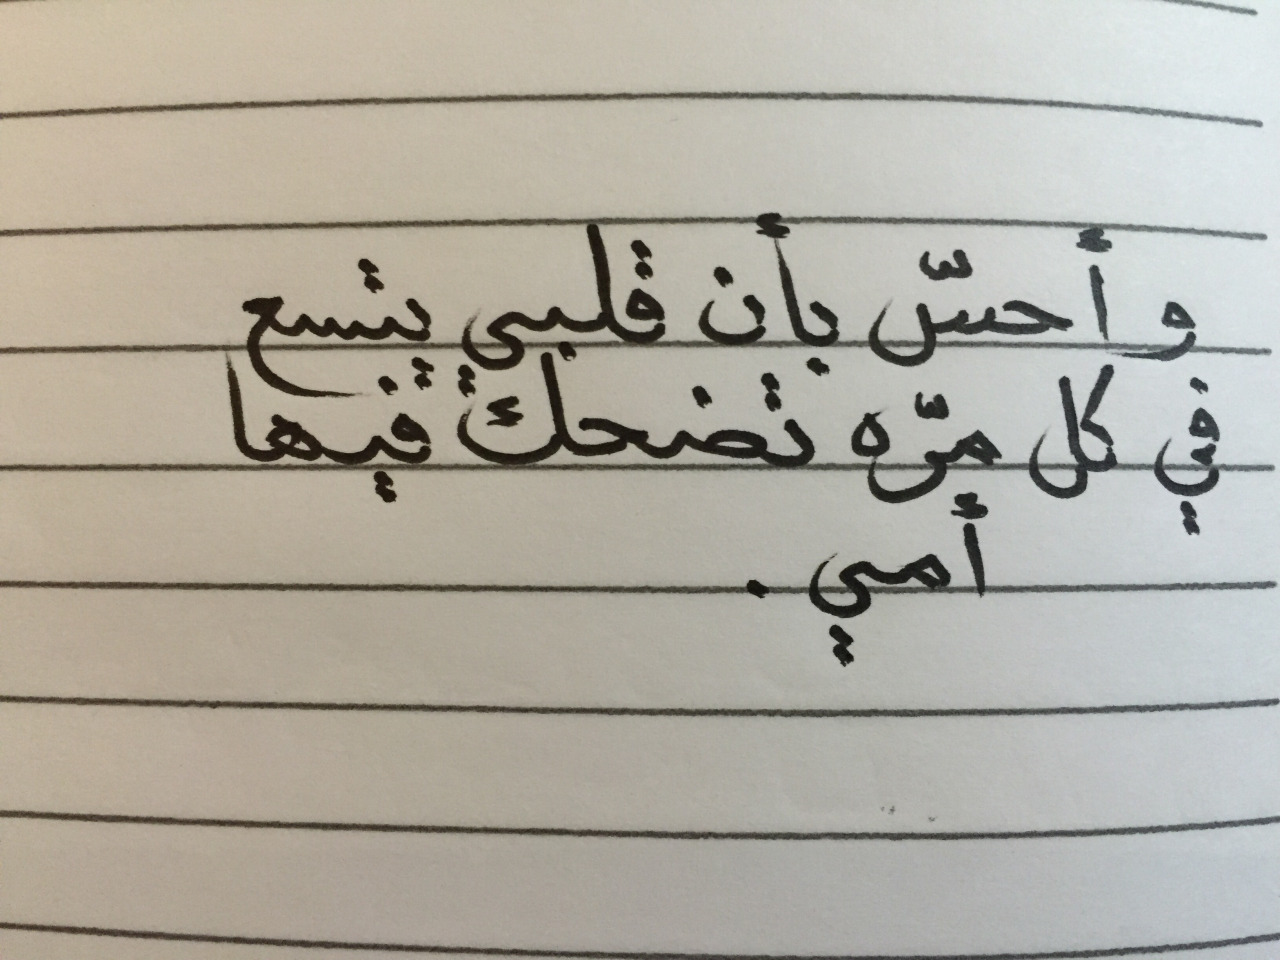 و أحسّ بأن قلبي يتسع
في كل مرّه تضحك فيها
أمي .